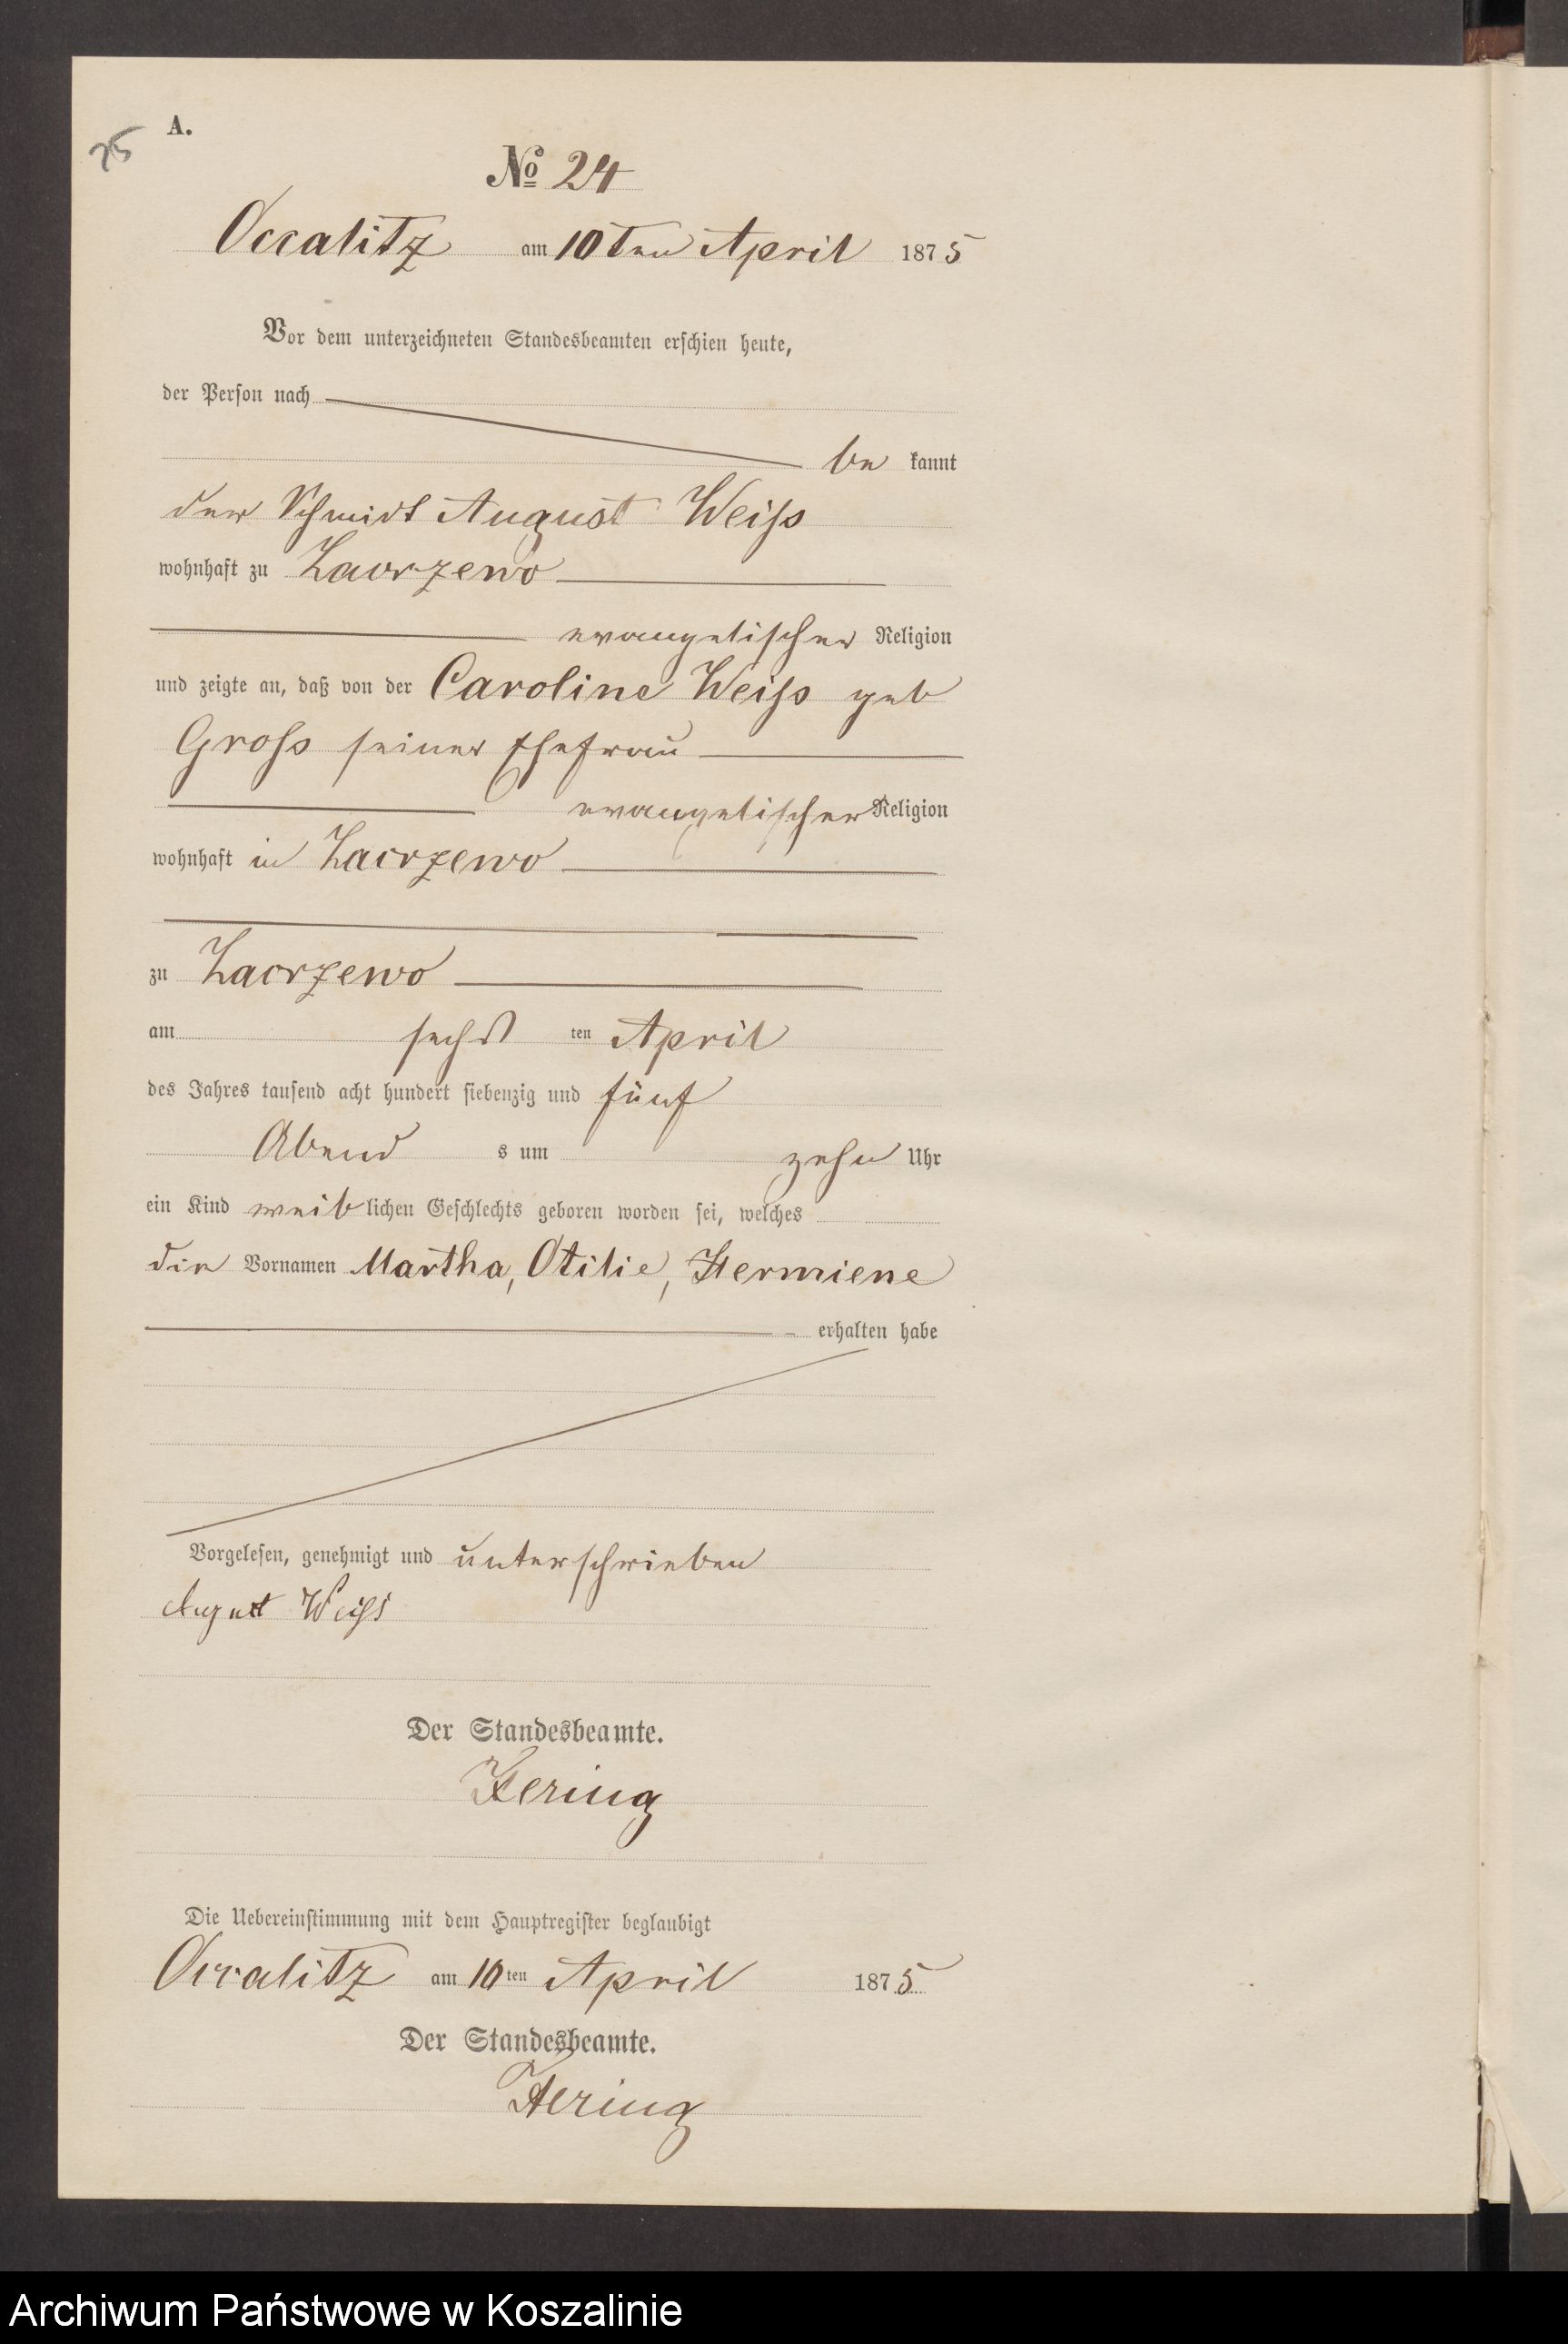 25
A.
No 24
Occalitz am 10ten April 1875
Vor dem unterzeichneten Standesbeamten erschien heute,
der Person nach
be kannt
der Schmidt August Weiss
wohnhaft zu Zacrzewo
evangelischer Religion
und zeigte an, daß von der Caroline Weiss geb
Gross seiner Ehefrau
evangelischer Religion
wohnhaft in Zacrzewo
zu Zacrzewo
am sechst ten April
des Jahres tausend acht hundert siebenzig und fünf
Abend s um zehn Uhr
ein Kind weiblichen Geschlechts geboren worden sei, welches
die Vornamen Martha, Otilie, Hermiene
erhalten habe
Vorgelesen, genehmigt und unterschrieben
August Weiss
Der Standesbeamte.
Hering
Die Uebereinstimmung mit dem Hauptregister beglaubigt
Occalitz am 10ten April 1875
Der Standesbeamte.
Hering
Archiwum Państwowe w Koszalinie